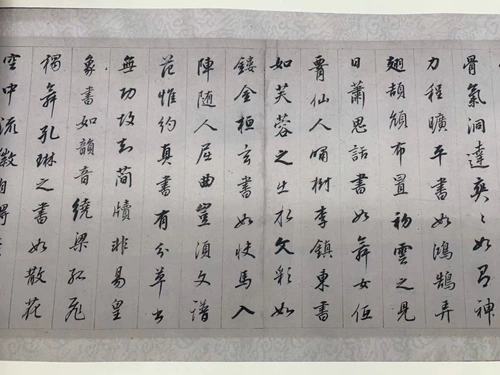 骨氣洞達爽〻如有神
力程曠平書如鴻鵠弄
翅頡頏布置初雲之見
日蕭思話書如舞女低
腰仙人嘯樹李鎮東書
如芙蓉之出水文彩如
鏤金桓玄書如快馬入
陣随人屈曲豈須文譜
范惟約真書有分草書
無功故知簡牘非易皇
象書如韻音繞梁孤飛
獨舞孔琳之書如散花
空中流徽自得